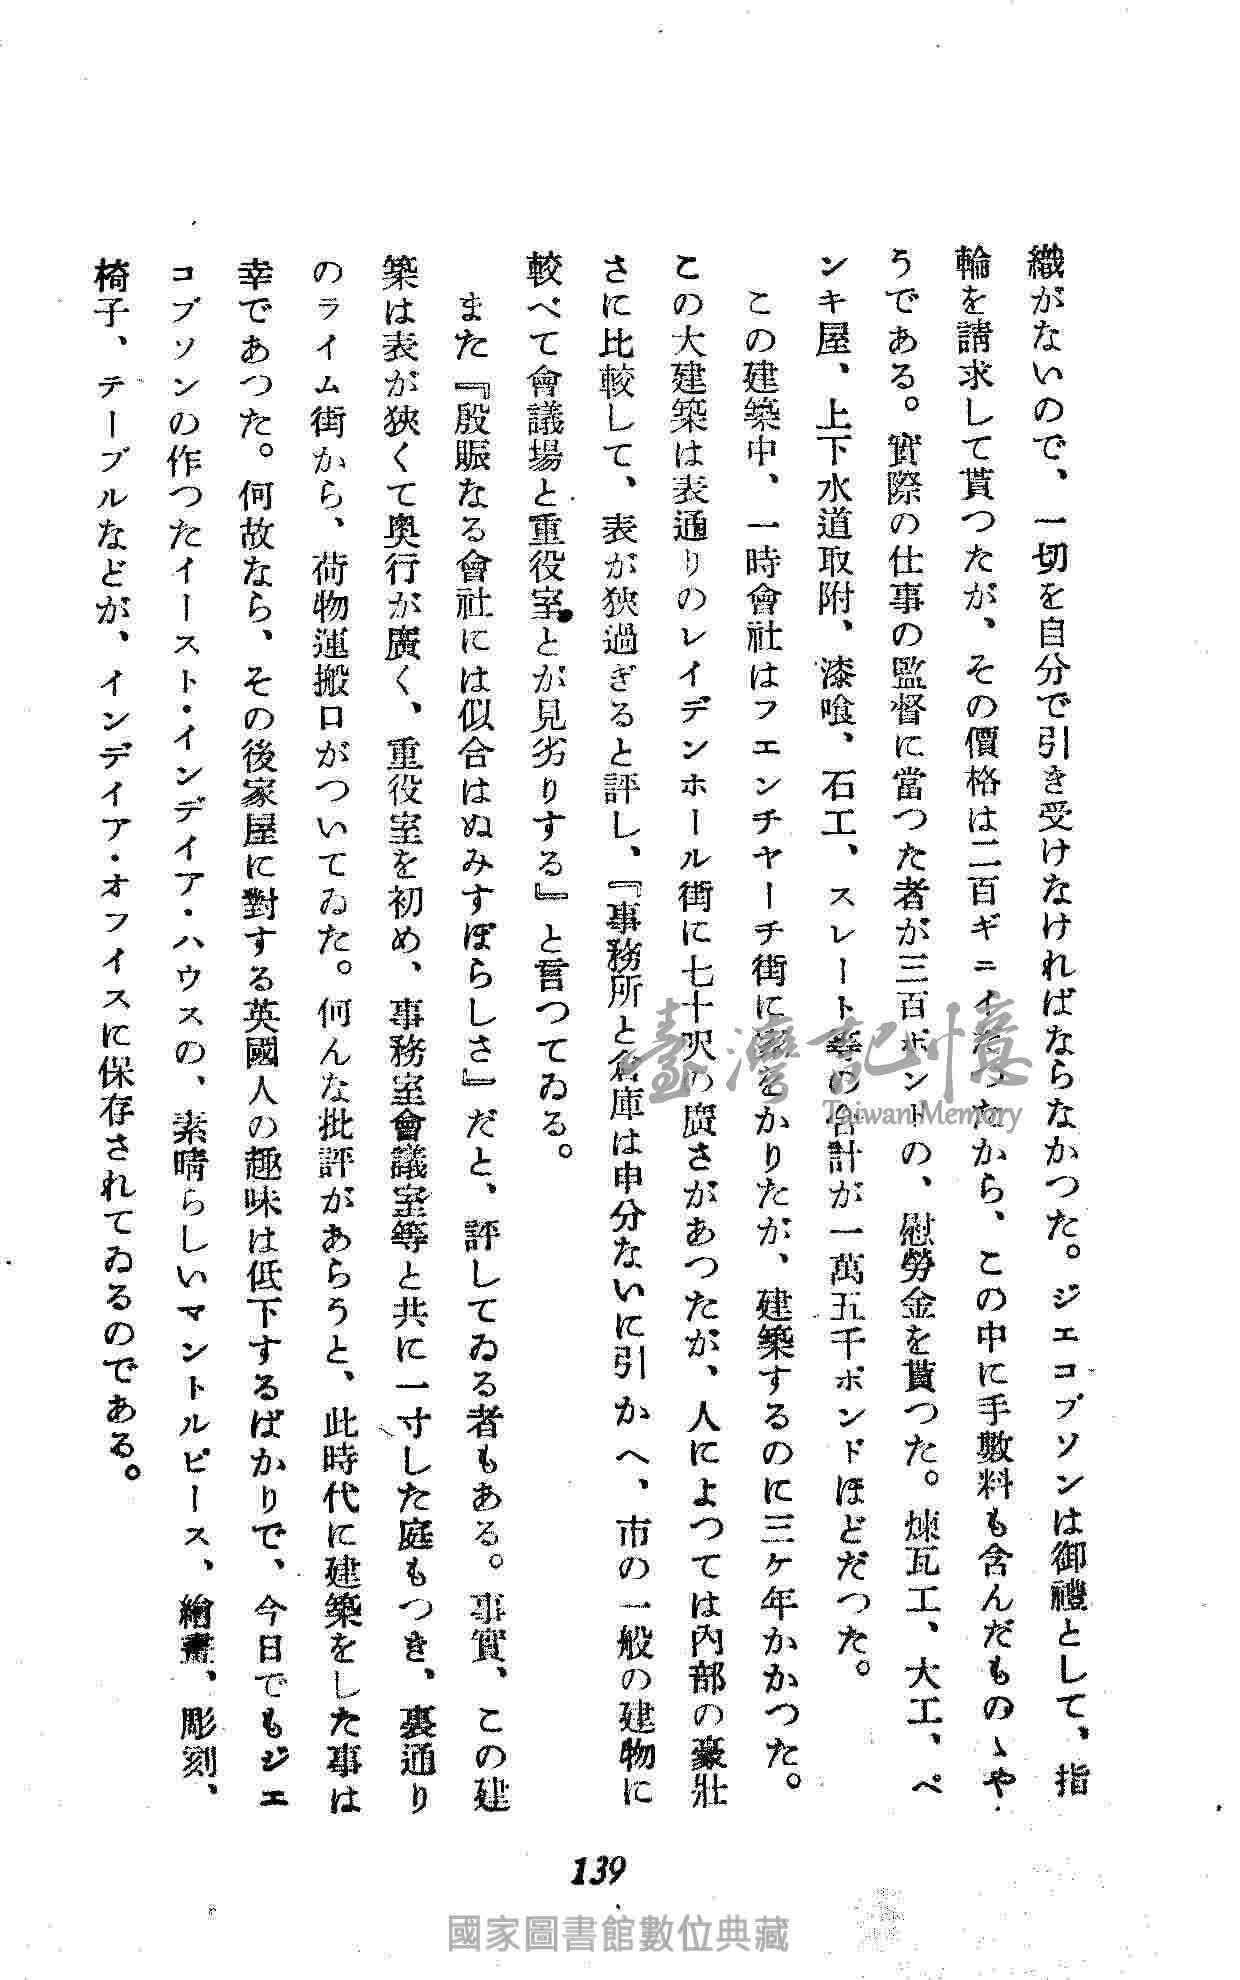 織がないので、一切を自分で引き受けなければならなかつた。ジエコブソンは御禮として、指
輪を請求して貰つたが、その價格は二百ギニイだつたから、この中に手數料も含んだものゝや
うである。實際の仕事の監督に當つた者が三百ポンドの、慰勞金を貰つた。煉瓦工、大工、ペ
ンキ屋、上下水道取附、漆喰、石工、スレート等の合計が一萬五千ポンドほどだつた。
この建築中、一時會社はフエンチヤーチ街に家をかりたが、建築するのに三ケ年かかつた。
この大建築は表通りのレイデンホール街に七十呎の廣さがあつたが、人によつては內部の豪壯
さに比較して、表が狹過ぎると評し、『事務所と倉庫は申分ないに引かへ、市の一般の建物に
較べて會議場と重役室とが見劣りする』と言つてゐる。
また『殷賑なる會社には似合はぬみすぼらしさ』だと、評してゐる者もある。事實、この建
築は表が狹くて奧行が廣く、重役室を初め、事務室會議室等と共に一寸した庭もつき、裏通り
のライム街から、荷物運搬口がついてゐた。何んな批評があらうと、此時代に建築をした事は
幸であつた。何故なら、その後家屋に對する英國人の趣味は低下するばかりで、今日でもジエ
コブソンの作つたイースト・インデイア・ハウスの、素晴らしいマントルピース、繪畫、彫刻、
椅子、テーブルなどが、インデイア・オフイスに保存されてゐるのである。
139
臺灣記憶
Taiwan Memory
國家圖書館數位典藏